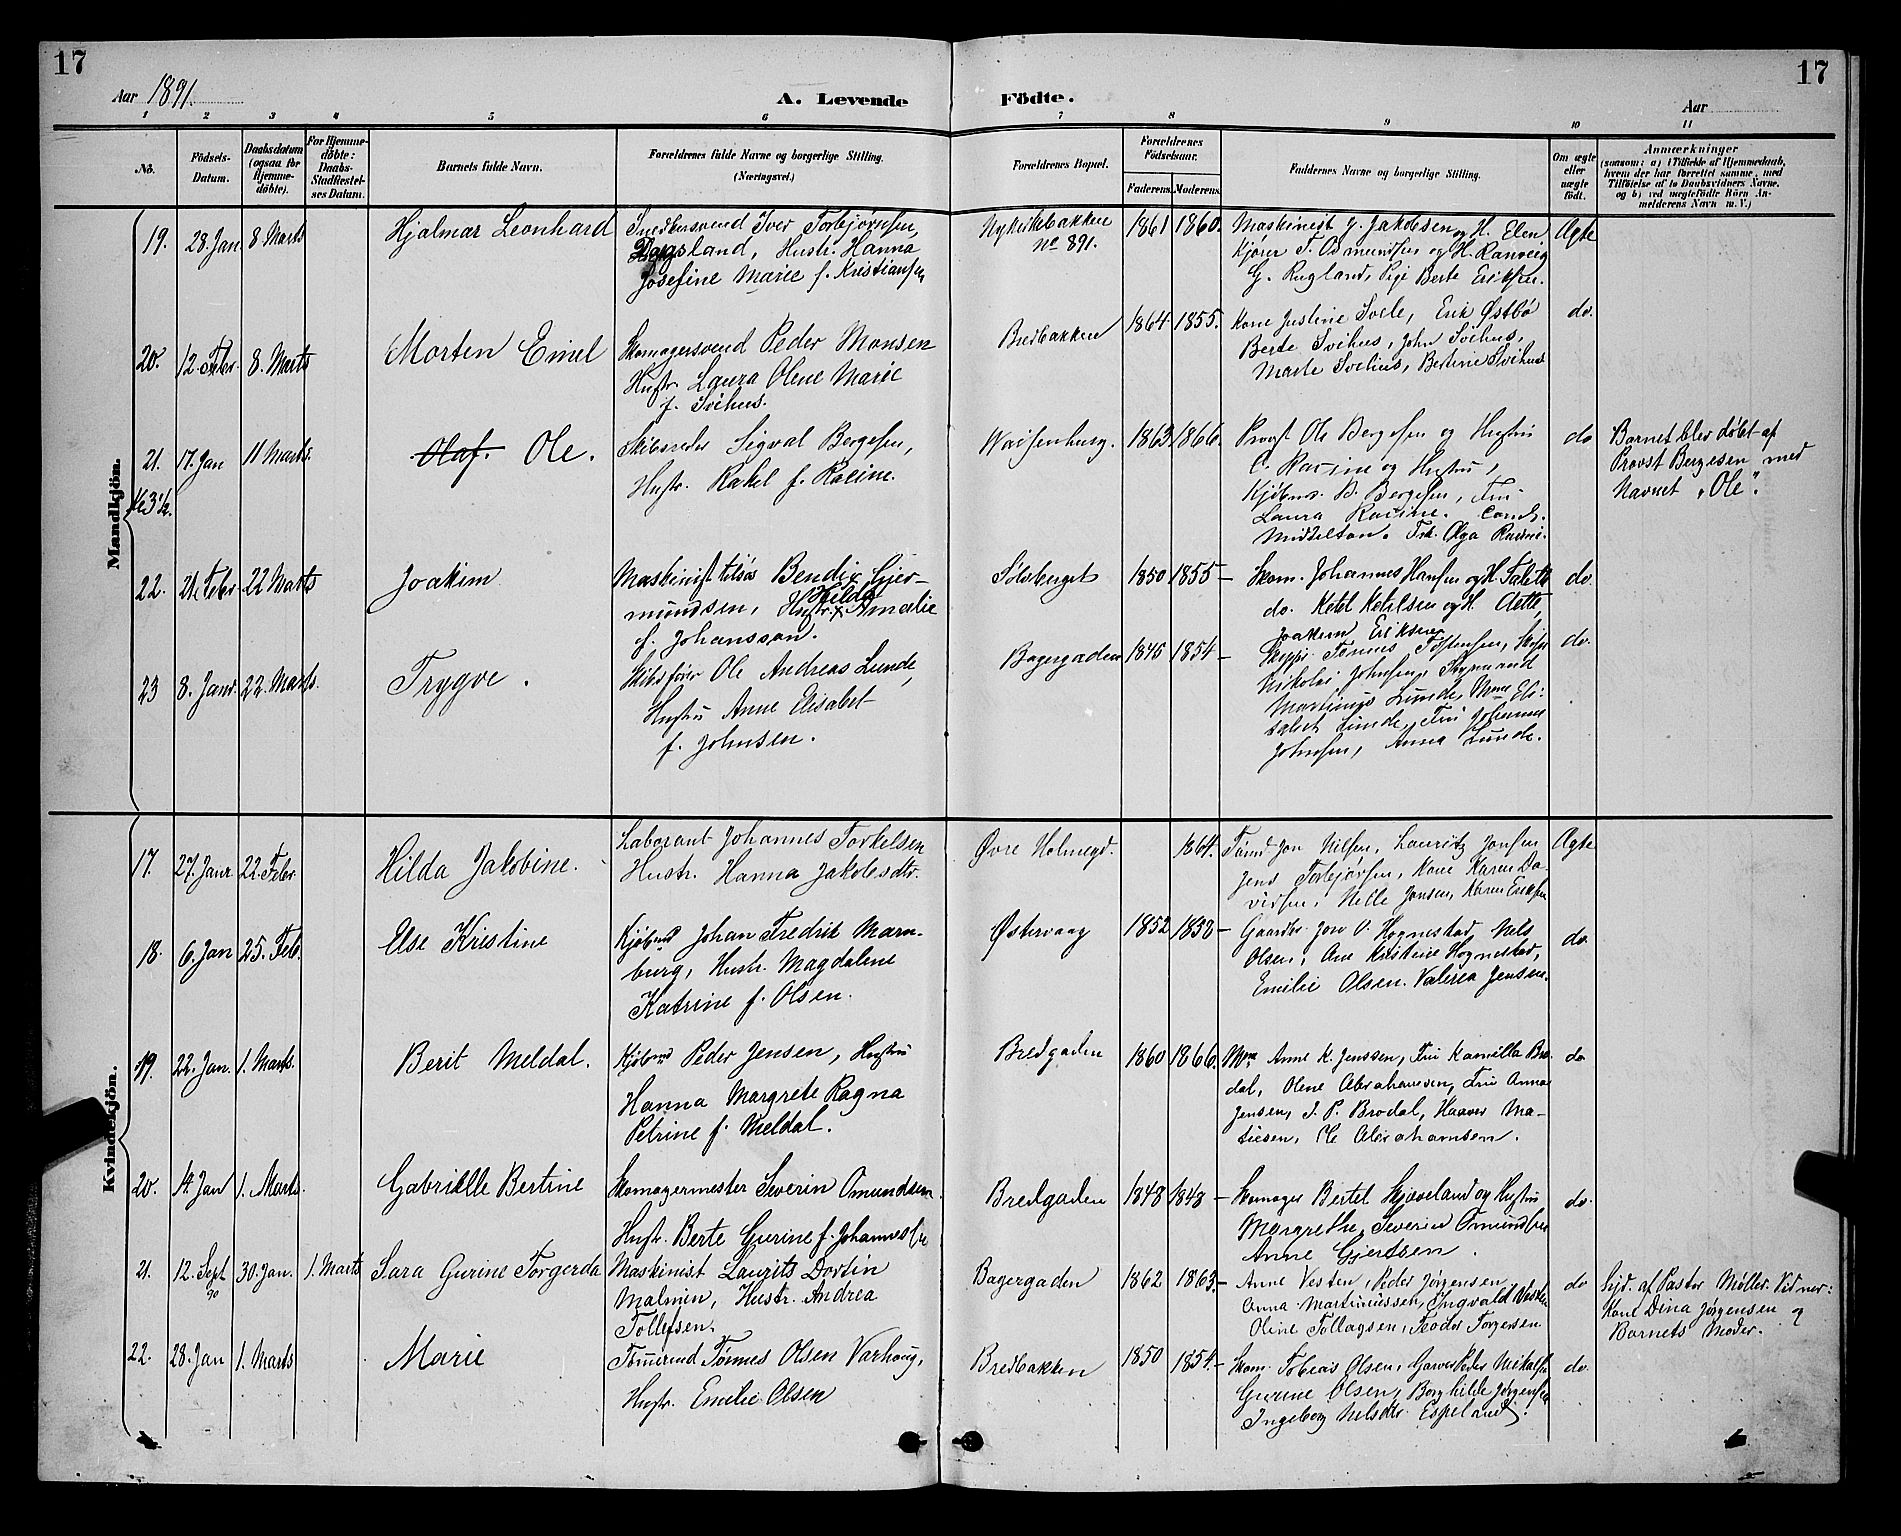 17
17
Aar 1891.
A. Levende Födte.
Aar
1 2 3 4 5 6 7 8 9 10 11
No.
Födsels-Datum.
Daabsdatum (ogsaa for Hjemmedöbte).
For Hjemmedöbte: Daabs-Stadfæstelses Datum.
Barnets fulde Navn.
Forældrenes fulde Navne og borgerlige Stilling.
(Næringsvei.)
Forældrenes Bopæl.
Forældrenes Födselsaar.
Faderens. Moderens.
Faddernes Navne og borgerlige Stilling.
Om ægte eller uægte födt.
Anmærkninger
(saasom: a) i Tilfælde af Hjemmedaab, hvem der har forrettet samme, med Tilföielse af to Daabsvidners Navne, og b) ved uægtefödte Börn Anmelderens Navn m. V.)
Mandkjön.
19. 28. Jan 8 Marts Hjalmar Leonhard
Snedkersvend Iver Torbjørnsen,
Høgsland, Hustr. Hanna
Josefine Marie f. Kristiansen
Nykirkebakken
no 891.
1861 1860.
Maskinist J. Jakobsen og H. Elen
Kjører T. Osmundsen og H. Ranveig
G. Rugland, Pige Berte Eriksen.
Ægte
20. 12. Febr. 8. Marts Morten Emel
Skomagersvend Peder Monsen
Hustr. Laura Olene Marie
f. Svihus.
Bredbakken
1864 1855.
Kone Justine Soele, Erik Østbø
Berte Svihus, John Svihus,
Marte Svihus, Bertine Svihus
do.
21. 17. Jan 11 Marts. Olaf. Ole.
Kl 3½.
Skibsreder Sigval Bergesen,
Hustr. Rakel f. Racine.
Waisenhusg.
1863 1866.
Provst Ole Bergesen og Hustru
C. Racine og Hustru,
Kjøbm. B. Bergesen, Frk
Laura Racine. Cand.
Middelton. Frk. Olga Racine.
do
Barnet blev døbt af
Provst Bergesen med
Navnet "Ole".
22. 21. Febr 22 Marts Joakim
Maskinist tilsøs Bendix Gjer-
mundsen, Hustr. x Amalie
Hilda
f. Johansson.
Solsberget
1850 1855 –
Skom. Johannes Hansen og H. Talette
do. Ketel Ketelsen og H. Aette,
Joakim Eriksen
do.
23 8. Janr. 22. Marts. Trygve.
Skibsfører Ole Andreas Lunde,
Hustru Anne Elisabet
f. Johnsen.
Bagergaden
1845 1854 –
Skipp. Tønnes Tostensen, Skipp
Nikolai Johnsen, Styrmand
Martinus Lunde, Mme Eli-
sabet Lunde, Frk Johanna
Johnsen, Anna Lunde.
do.
Kvindekjön.
17. 27. Janr 22. Febr. Hilda Jakobine.
Laborant Johannes Torkelsen
Hustr. Hanna Jakobsdtr.
Øvre Holmegd.
1864.
Tømd Jon Nilsen, Lauritz Jonsen
Jens Torbjørsen, Kone Karen Da-
vidsen, Nelle Jonsen, Karen Eriksen
Ægte
18. 6. Jan 25. Feb. Else Kristine
Kjøbmd Johan Fredrik Marn-
burg, Hustr. Magdalene
Katrine f. Olsen.
Østervaag
1852 1858 –
Gaardbr. Jon O. Hognestad, Nels
Olsen, Ane Kristine Hognestad,
Emilie Olsen. Valerea Jensen.
do.
19. 22. Jan. 1. Marts. Berit Meldal.
Kjøbmd Peder Jensen, Hustru
Hanna Margrete Ragna
Petrine f. Meldal.
Bredgaden
1860 1866.
Mme Anne K. Jenssen, Frk Kamilla Bro-
dal, Olene Abrahamsen, Frk Anna
Jensen, J. P. Brodal, Haaver Ma-
tiesen, Ole Abrahamsen.
do
20. 14. Jan 1. Marts. Gabrielle Bertine
Skomagermester Severin Omundsen.
Hustr. Berte Gurine f. Johannessen
Bredgaden
1848 1848 –
Skomager Bertel Skjæveland og Hustru
Margrethe, Severin Omundsen
Anne Gjertsen.
do.
21. 12. Sept 90 30. Jan. 1. Marts Sara Gurine Torgerda
Maskinist Laurits Dortin
Malmin, Hustr. Andrea
Tollefsen.
Bagergaden
1862 1863 –
Anne Vesten, Peder Jørgensen
Anna Martinussen, Ingvald Vesten
Oline Tollagsen, Teodor Torgersen
do
Hjd. af Pastor Møller. Vidner:
Kone Dina Jørgensen &
Barnets Moder.
22. 28. Jan 1. Marts Marie
Tømmermd Tønnes Olsen Varhaug,
Hustr. Emelie Olsen
Bredbakken
1850 1854 –
Skom. Tobias Olsen, Garver Peder Mikalsen
Gurine Olsen, Borghilde Jørgensen
Ingeborg Nelsdtr. Espeland.
do.